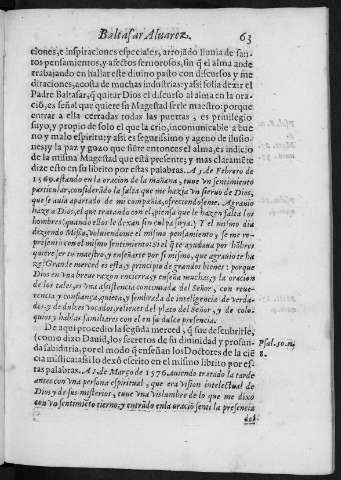 Baltasar Alvarez. 63
ciones, e inspiraciones especiales, arrojãdo lluuia de san-
tos pensamientos, y afectos feruorosos, sin q̃ el alma ande
trabajando en hallar este diuino pasto con discursos y me
ditaciones, acosta de muchas industrias: y assi solia dezir el
Padre Baltasar, q̃ quitar Dios el discurso al alma en la ora-
ciõ, es señal que quiere su Magestad serle maestro: porque
entrar a ella cerradas todas las puertas, es priuilegio
suyo, y propio de solo el que la crio, incomunicable a bue
no y malo espiritu: y assi es segurissimo y ageno de ilusio-
nes: y la paz y gozo que siẽte entonces el alma, es indicio
de la misma Magestad que està presente; y mas claramẽte
dize esto en su librito por estas palabras. A 5. de Febrero de
1569. estando en la oracion de la mañana, tuue vn sentimiento
particular, considerãdo la falta que me hazia vn sieruo de Dios,
que se auia apartado de mi compañia, ofreciendoseme. Agrauio
haze a Dios, el que tratando con el, piensa que le hazen falta los
hombres (quando ellos le dexan sin culpa suya.) Y el mismo dia
diziendo Missa, voluiendome el mismo pensamiento, se me re-
presentò con el mismo sentimiento: Si el q̃ te ayudaua por hõbres
quiere ser tu maestro, y enseñarte por si mismo, que agrauio te ha
ze? Grande merced es esta, y principio de grandes bienes: porque
Dios en vna breue razon encierra, y enseña muchas; y la oracion
de los tales, es vna assistencia continuada del Señor, con reue-
rencia y confiança, quieta, y sembrada de inteligencia de verda-
des, y de dulces vocados, que lleuet del plato del Señor, y de colo-
quios y hablas familiares con el en su dulce presencia.
De aqui procedio la segũda merced, q̃ fue descubrirle,
(como dixo Dauid, los secretos de su diuinidad y profun-
da sabiduria, por el modo q̃ enseñan los Doctores de la ciẽ
cia mistica: assi lo dexò escrito en el mismo librito por es-
tas palabras. A 1. de Março de 1576. auiendo tratado la tarde
antes con vna persona espiritual, que era vision intelectual de
Dios y de sus misterios, tuue vna vislumbre de lo que me dixo
con vn sentimiẽto tierno, y entrãdo en la oraciõ senti la presencia
del
Psal. 50. n.
8.